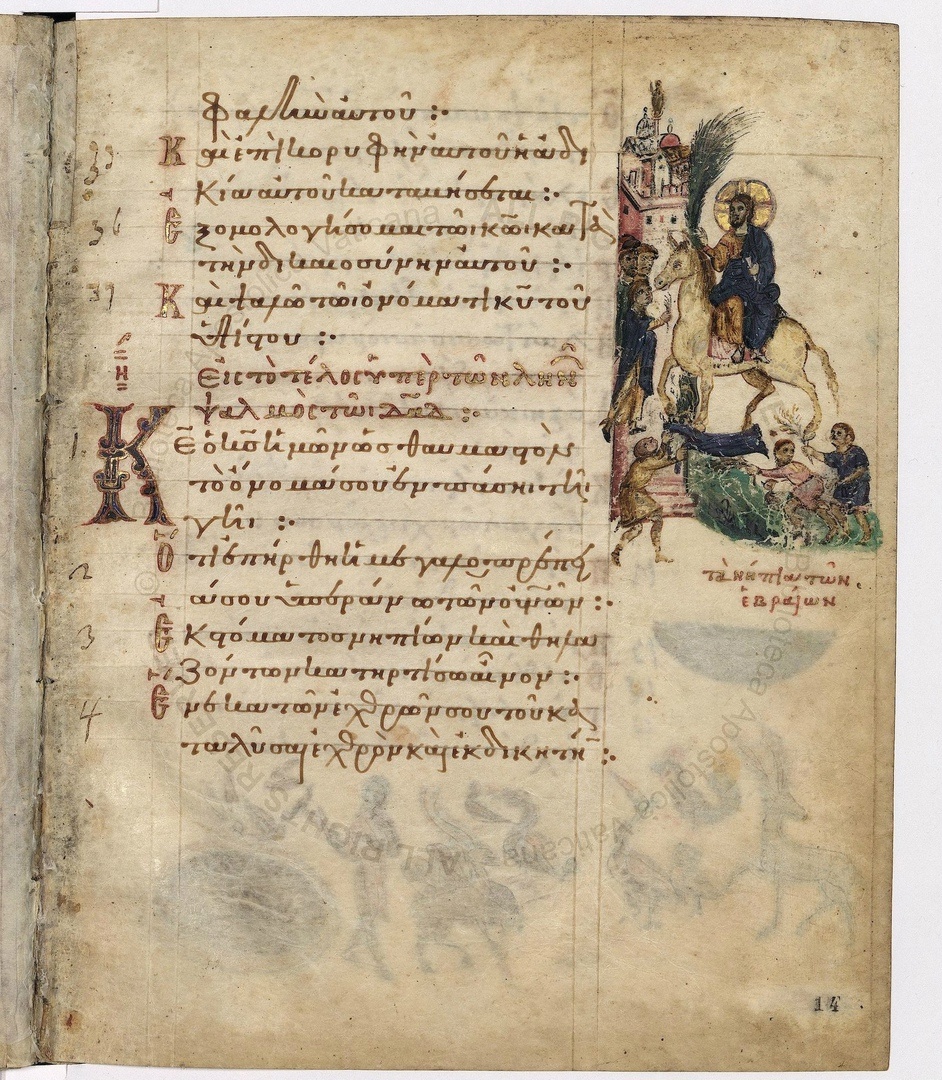 φαλὴν αὐτοῦ :·
Καὶ ἐπὶ κορυφὴν αὐτοῦ ἡ ἀδι
κία αὐτοῦ καταβήσεται :·
36 Ἐξομολογήσομαι τῶι κ̅ω̅ι κατὰ
τὴν δικαιοσύνην αὐτοῦ :·
37 Καὶ ψαλῶ τῶι ὀνόματι κ̅υ̅ τοῦ
ὑψίστου :·
η
Εἰς τὸ τέλος ὑπὲρ τῶν ληνῶν
ψαλμὸς τῶι δ̅α̅δ̅ :·
1 Κ̅ε̅ ὁ κ̅ς̅ ἡμῶν ὡς θαυμαστὸν
τὸ ὄνομά σου ἐν πάσηι τῆι
γῆι :·
2 Ὅτι ἐπήρθη ἡ μεγαλοπρέπει
ά σου ὑπεράνω τῶν ο̅υ̅ν̅ῶν :·
3 Ἐκ στόματος νηπίων καὶ θηλα
ζόντων κατηρτίσω αἶνον :·
4 Ἕνεκα τῶν ἐχθρῶν σου τοῦ κα
ταλῦσαι ἐχθρὸν καὶ ἐκδικητήν :·
τὰ νήπια τῶν
ἑβραίων
14